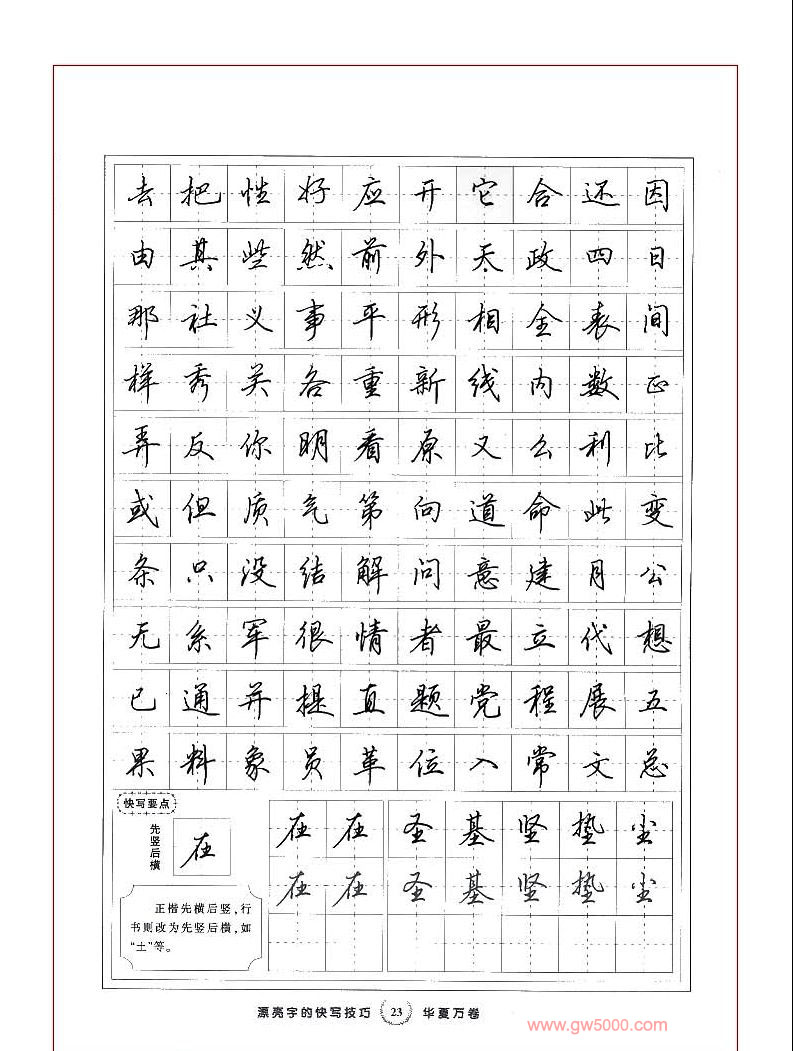 去把性好应开它合还因
由其些然前外天政四日
那社义事平形相全表间
样秀关各重新线内数正
弄反你明看原又么利比
或但质气第向道命此变
条只没结解问意建月公
无系军很情者最立代想
已通并提直题党程展五
果料象员革位入常文总
快写要点
先竖后横
在
正楷先横后竖，行
书则改为先竖后横，如
“土”等。
在在圣基竖垫尘
在在圣基竖垫尘
漂亮字的快写技巧 23 华夏万卷
www.gw5000.com